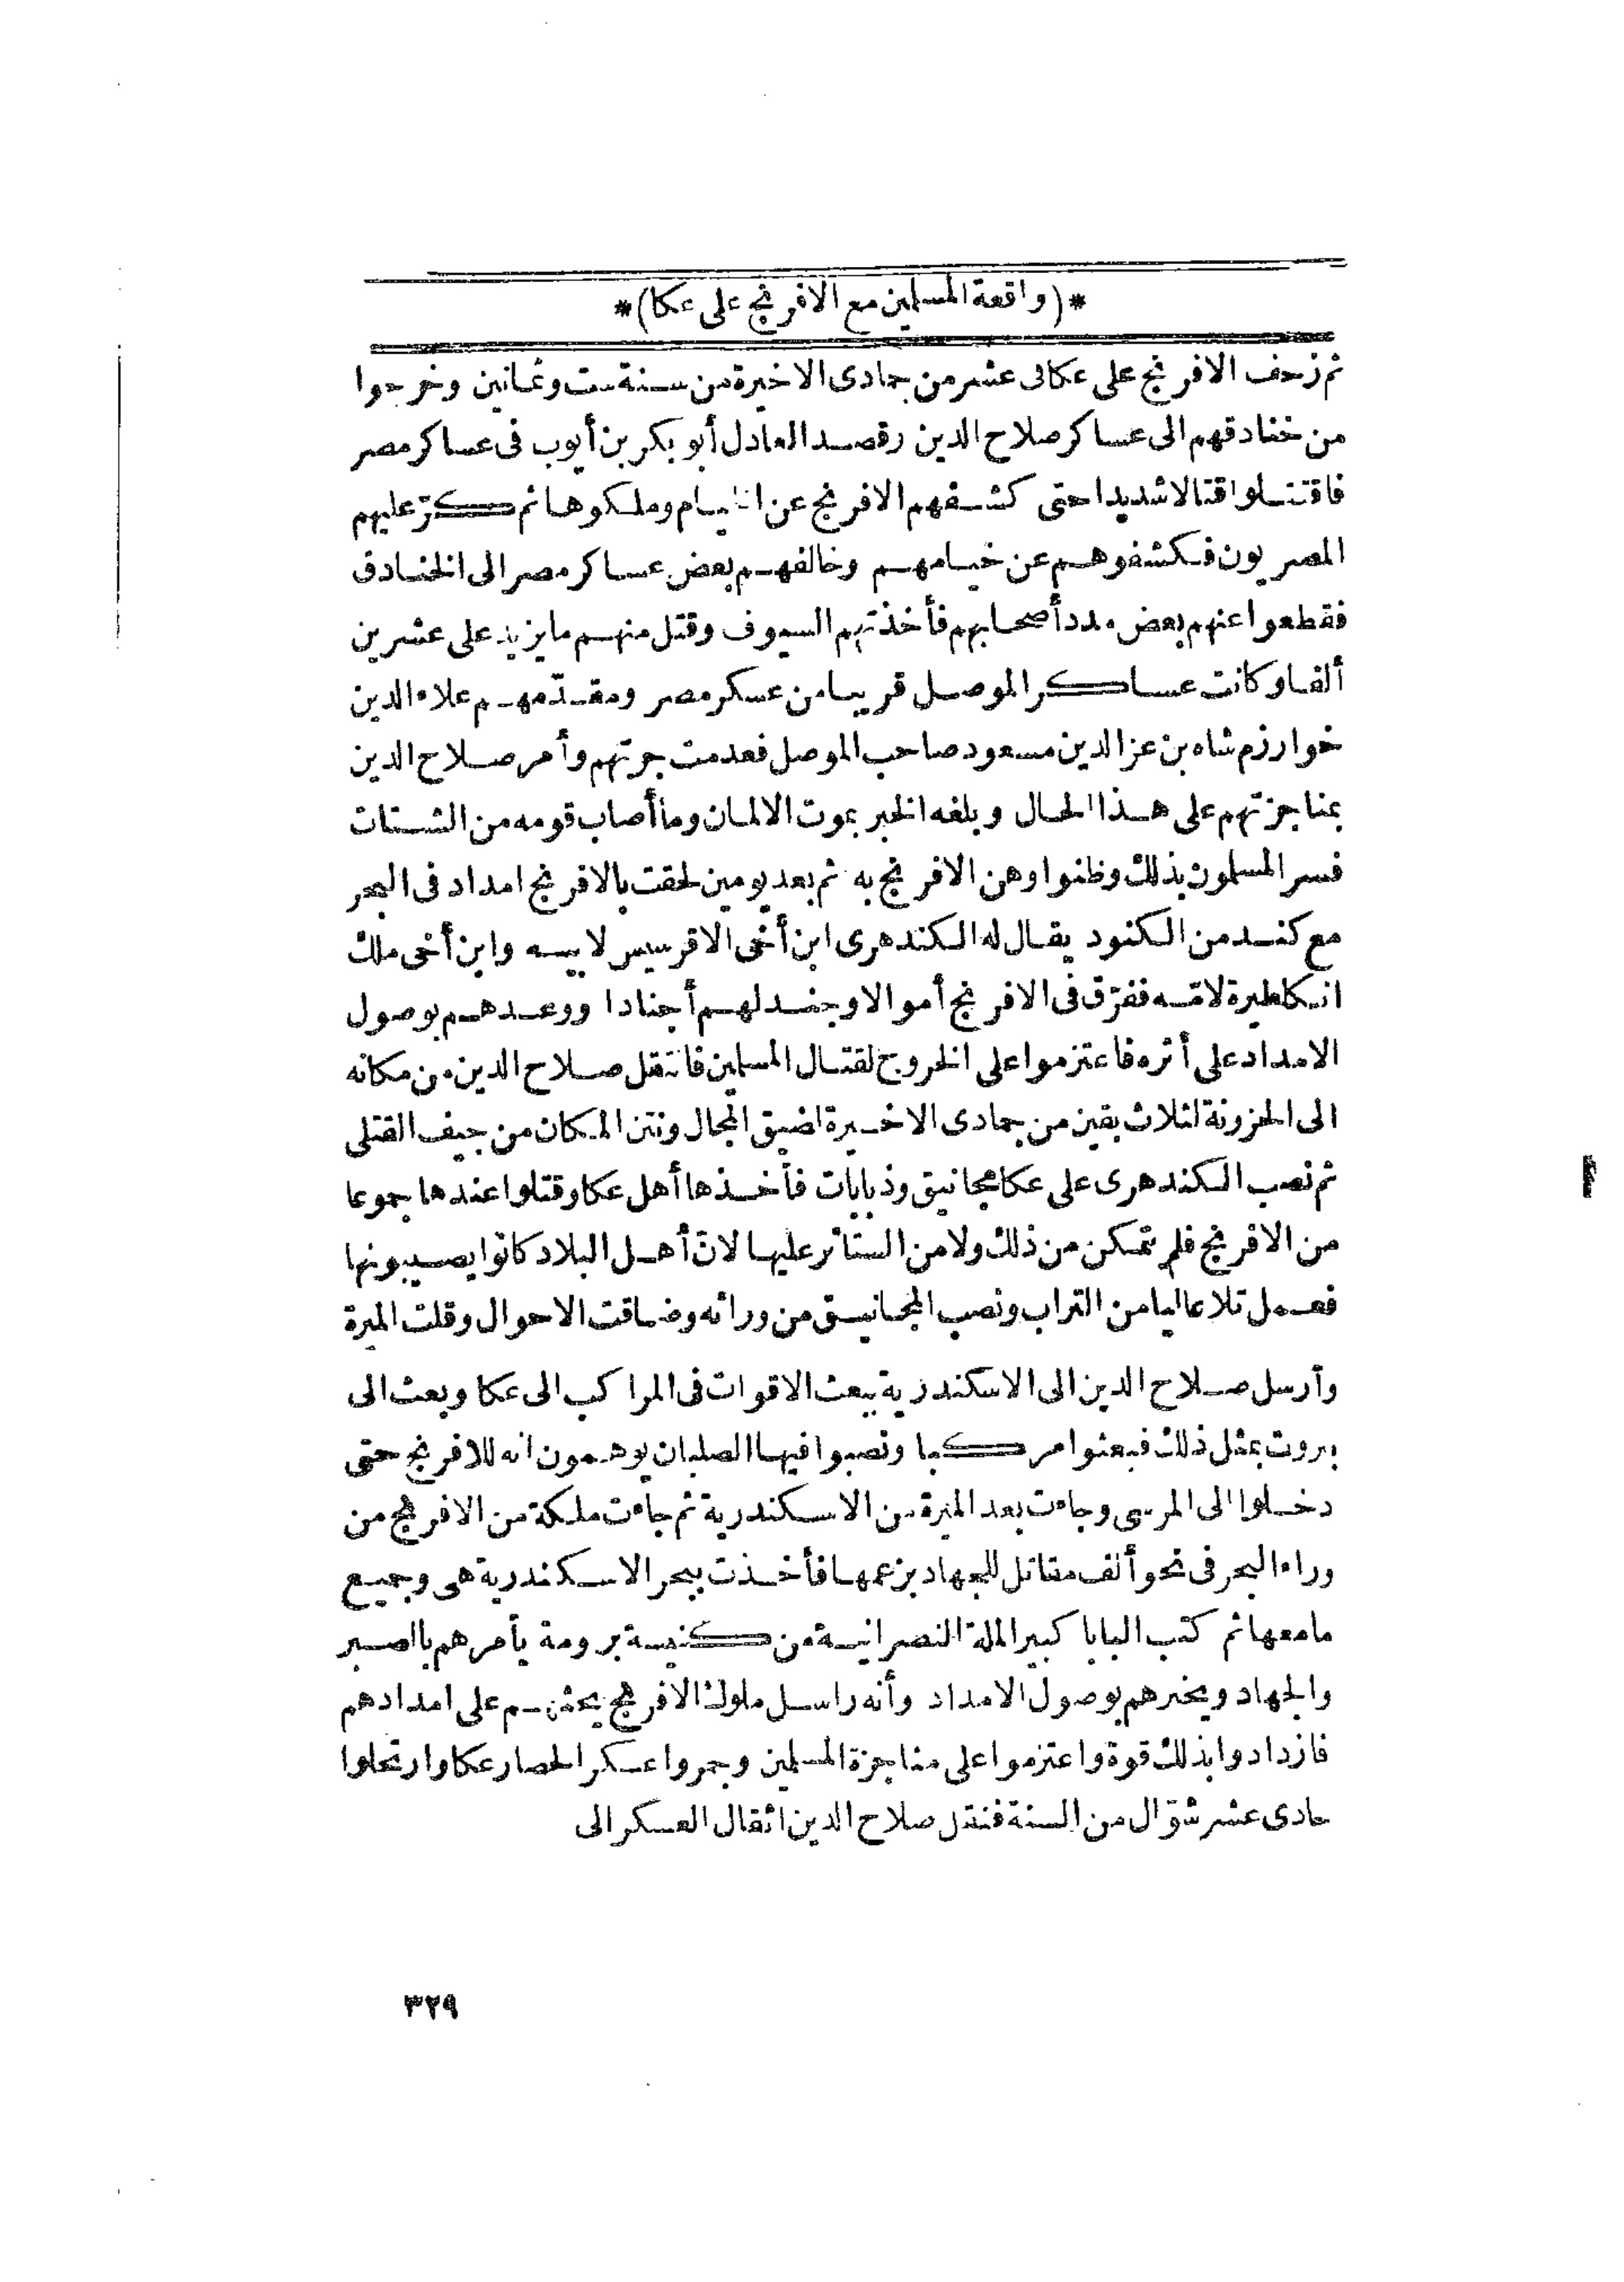 *(واقعة المسلمين مع الافرنج على عكا)*
ثم زحف الافرنج على عكا عشر من جمادى الاخيرة من سنة ست وثمانين وخرجوا
من خنادقهم الى عساكر صلاح الدين وقصد العادل أبو بكر بن أيوب فى عساكر مصر
فاقتتلوا قتالا شديدا حتى كشفهم الافرنج عن الخيام وملكوها ثم كرّ عليهم
المصريون فكشفوهم عن خيامهم وخالفهم بعض عساكر مصر الى الخنادق
فقطعوا عنهم بعض مدد أصحابهم فأخذتهم السيوف وقتل منهم ما يزيد على عشرين
ألفا وكانت عساكر الموصل قريبا من عسكر مصر ومقدّمهم علاء الدين
خوارزم شاه بن عز الدين مسعود صاحب الموصل فعدمت جرتهم وأمر صلاح الدين
بمناجزتهم على هذا الحال وبلغه الخبر بموت الالمان وما أصاب قومه من الشتات
فسر المسلمون بذلك وظنوا وهن الافرنج به ثم بعد يومين لحقت بالافرنج امداد فى البحر
مع كند من الكنود يقال له الكندهرى ابن أخى الافرسيس لابيه وابن أخى ملك
انكلطيرة لامّه ففرّق فى الافرنج أموالا وجند لهم أجنادا ووعدهم بوصول
الامداد على أثره فاعتزموا على الخروج لقتال المسلمين فانتقل صلاح الدين من مكانه
الى الحزونة لثلاث بقين من جمادى الاخيرة لضيق المجال ونتن المكان من جيف القتلى
ثم نصب الكندهرى على عكا مجانيق وذبابات فأخذها أهل عكا وقتلوا عندها جموعا
من الافرنج فلم يتمكن من ذلك ولا من الستائر عليها لانّ أهل البلاد كانوا يصيبونها
فعمل تلا عاليا من التراب ونصب المجانيق من ورائه وضاقت الاحوال وقلت الميرة
وأرسل صلاح الدين الى الاسكندرية يبعث الاقوات فى المراكب الى عكا وبعث الى
بيروت بمثل ذلك فبعثوا مركبا ونصبوا فيها الصلبان يوهمون انه للافرنج حتى
دخلوا الى المرسى وجاءت بعد الميرة من الاسكندرية ثم جاءت ملكة من الافرنج من
وراء البحر فى نحو ألف مقاتل للجهاد بزعمها فأخذت ببحر الاسكندرية هى وجميع
ما معها ثم كتب البابا كبير الملة النصرانية من كنيسة برومة يأمرهم بالصبر
والجهاد ويخبرهم بوصول الامداد وأنه راسل ملوك الافرنج يحثهم على امدادهم
فازدادوا بذلك قوة واعتزموا على مناجزة المسلمين وجمروا عسكرا لحصار عكا وارتحلوا
حادى عشر شوّال من السنة فنقل صلاح الدين اثقال العسكر الى
٣٢٩